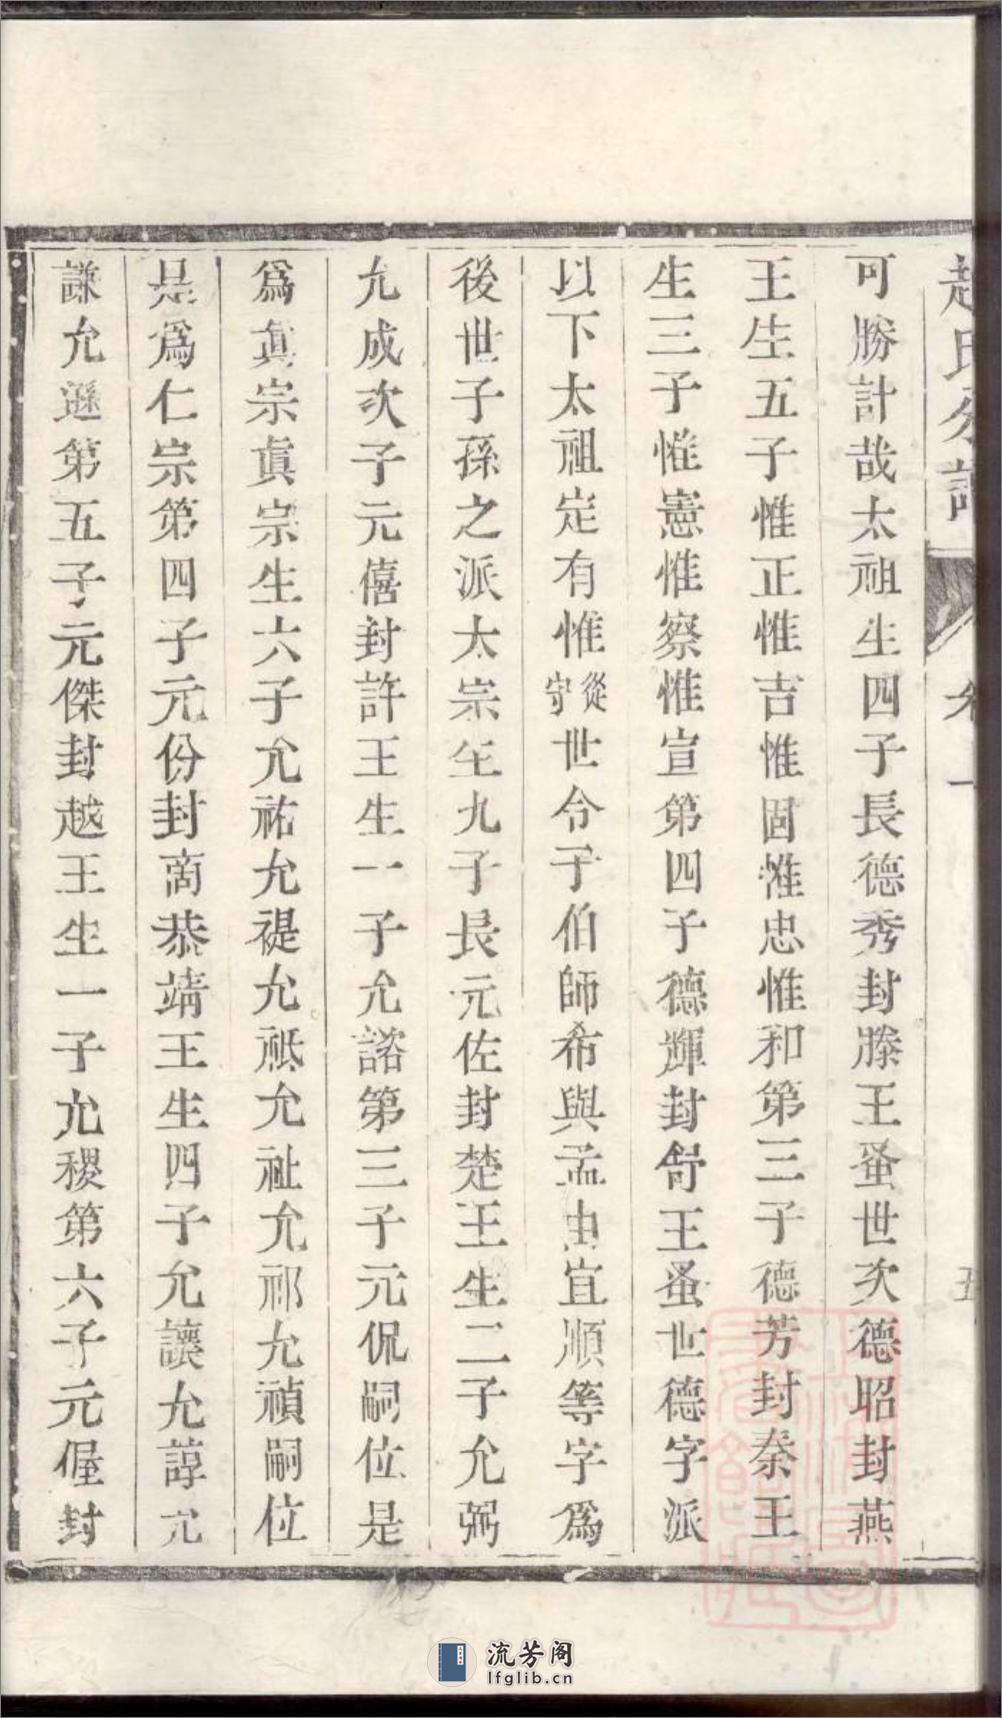 可勝計哉太祖生四子長德秀封滕王蚤世次德昭封燕
王生五子惟正惟吉惟固惟忠惟和第三子德芳封秦王
生三子惟憲惟察惟宣第四子德輝封舒王蚤世德字派
以下太祖定有惟從守世令子伯師希與孟由宜順等字爲
後世子孫之派太宗生九子長元佐封楚王生二子允弼
允成次子元僖封許王生一子允諮第三子元侃嗣位是
爲眞宗眞宗生六子允祐允禔允祗允祉允祁允禎嗣位
是爲仁宗第四子元份封商恭靖王生四子允讓允諄允
謙允遜第五子元傑封越王生一子允稷第六子元偓封
流芳阁
lfglib.cn